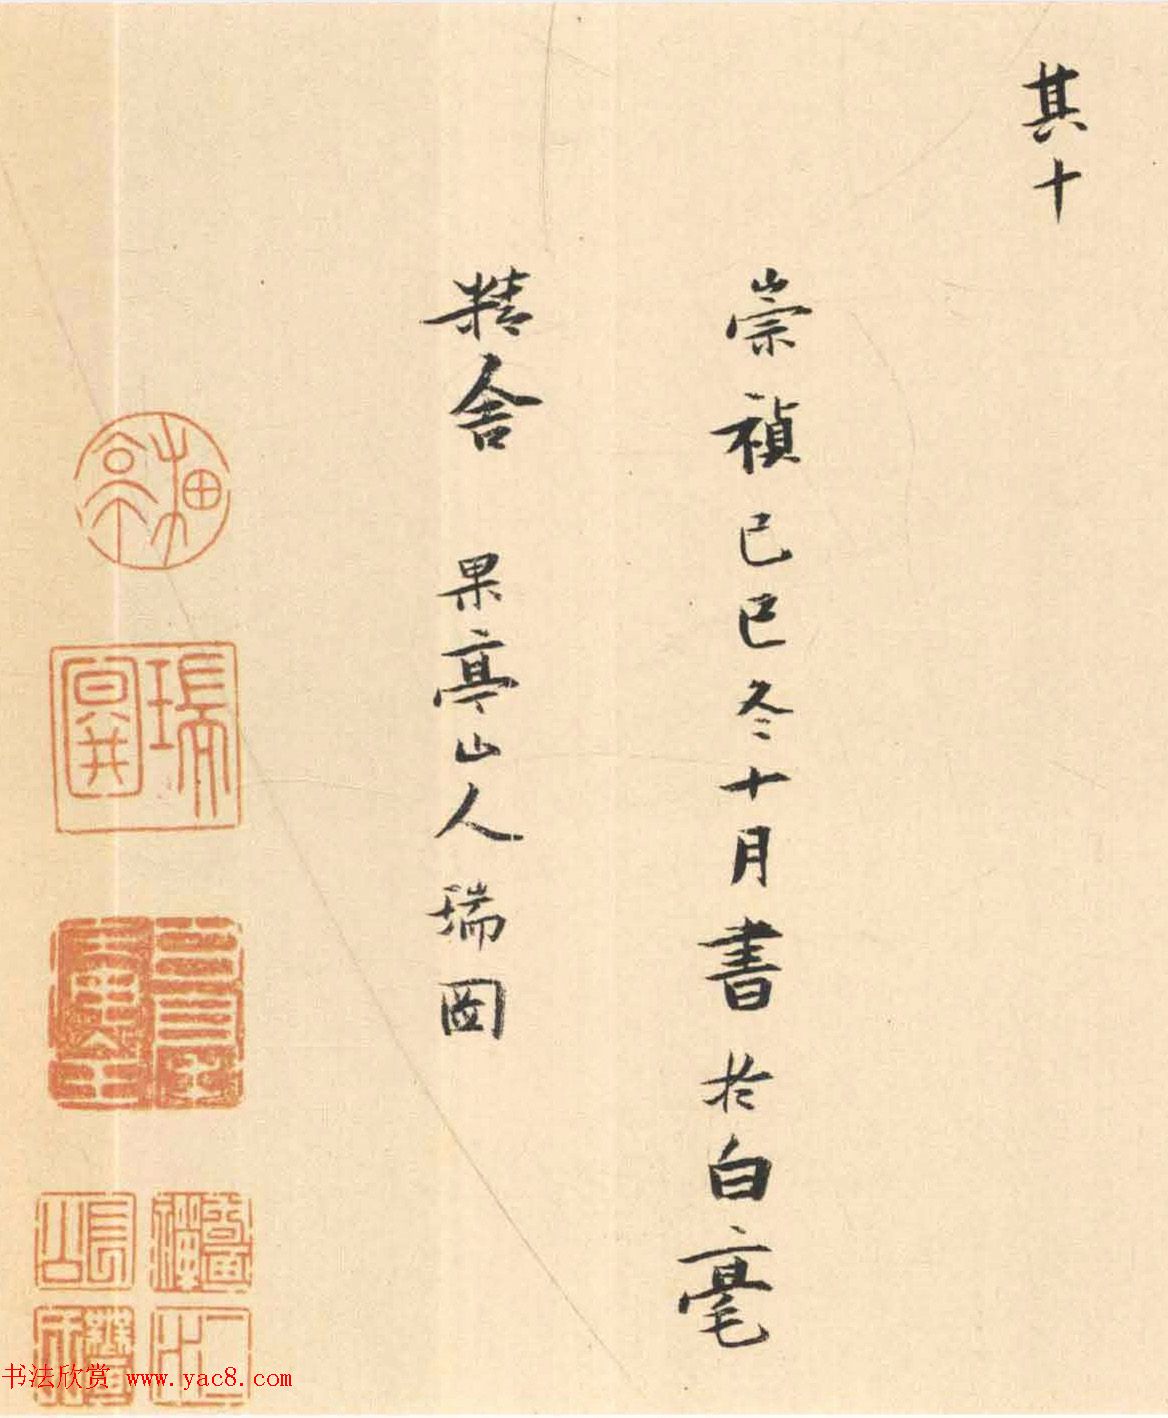 其十
崇禎己巳冬十月書於白毫
精舍 果亭山人瑞图
果亭
瑞圖
書法欣賞 www.yac8.com